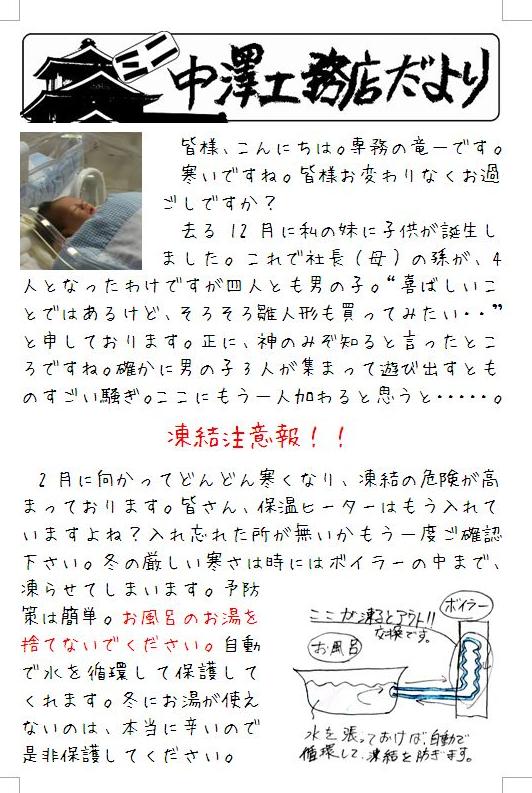 ミニ
中澤工務店だより
皆様、こんにちは。専務の竜一です。
寒いですね。皆様お変わりなくお過
ごしですか？
去る 12 月に私の妹に子供が誕生し
ました。これで社長（母）の孫が、4
人となったわけですが四人とも男の子。“喜ばしいこ
とではあるけど、そろそろ雛人形も買ってみたい・・”
と申しております。正に、神のみぞ知ると言ったとこ
ろですね。確かに男の子3人が集まって遊び出すとも
のすごい騒ぎ。ここにもう一人加わると思うと・・・・・。
凍結注意報！！
2 月に向かってどんどん寒くなり、凍結の危険が高
まっております。皆さん、保温ヒーターはもう入れて
いますよね？入れ忘れた所が無いかもう一度ご確認
下さい。冬の厳しい寒さは時にはボイラーの中まで、
凍らせてしまいます。予防
策は簡単。お風呂のお湯を
捨てないでください。自動
で水を循環して保護して
くれます。冬にお湯が使え
ないのは、本当に辛いので
是非保護してください。
ボイラー
ここが凍るとアウト!!
交換です。
お風呂
水を張っておけば、自動で
循環して、凍結を防ぎます。